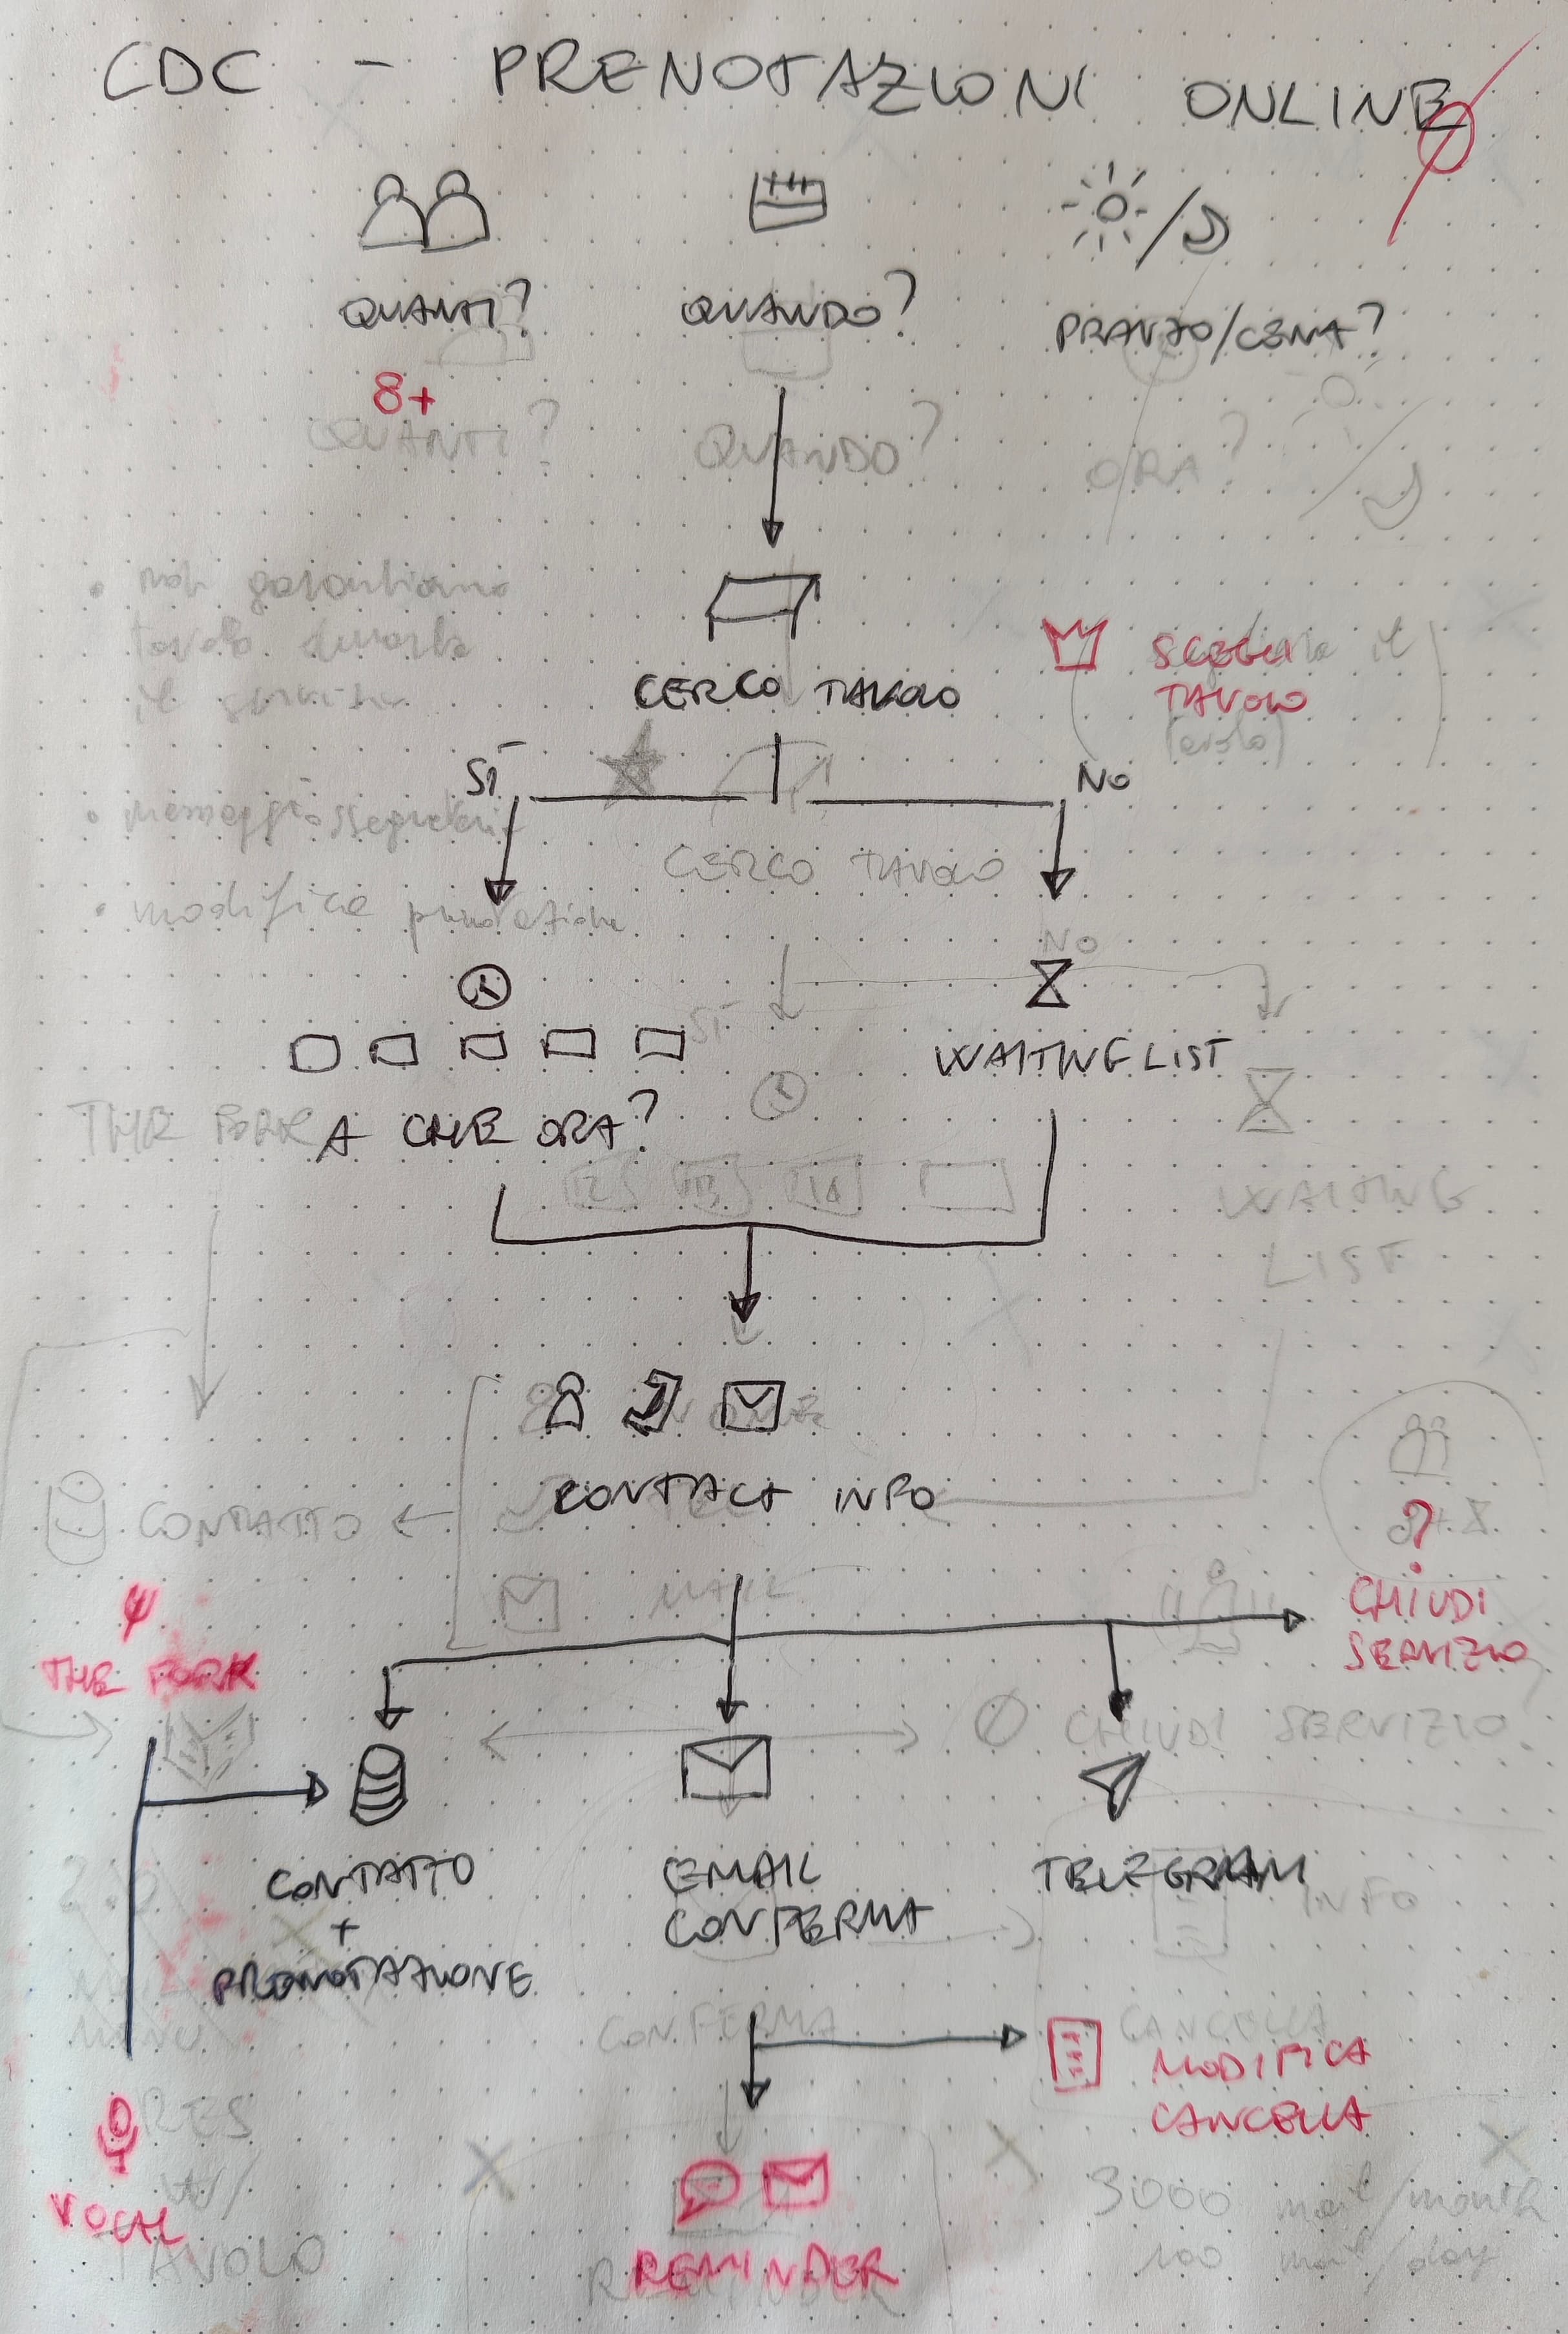 CDC - PRENOTAZIONI ONLINE
QUANTI?
QUANDO?
PRANZO/CENA?
8+
QUANTI?
QUANDO?
ORA?
• non garantiamo
tavolo
il
CERCO TAVOLO
SCEGLI
TAVOLO
il
SÌ
NO
• messaggio
CERCO TAVOLO
• modifica prenotazione
NO
SÌ
WAITING LIST
THE FORK
A CHE ORA?
12
13
14
WAITING
LIST
CONTACT INFO
CONTATTO
MAIL
?
CHIUDI
SERVIZIO
THE FORK
CHIUDI SERVIZIO
CONTATTO
+
PRENOTAZIONE
EMAIL
CONFERMA
TELEGRAM
INFO
CONFERMA
CANCELLA
MODIFICA
CANCELLA
VOCAL
TAVOLO
REMINDER
REMINDER
3000 mail/month
100 mail/day